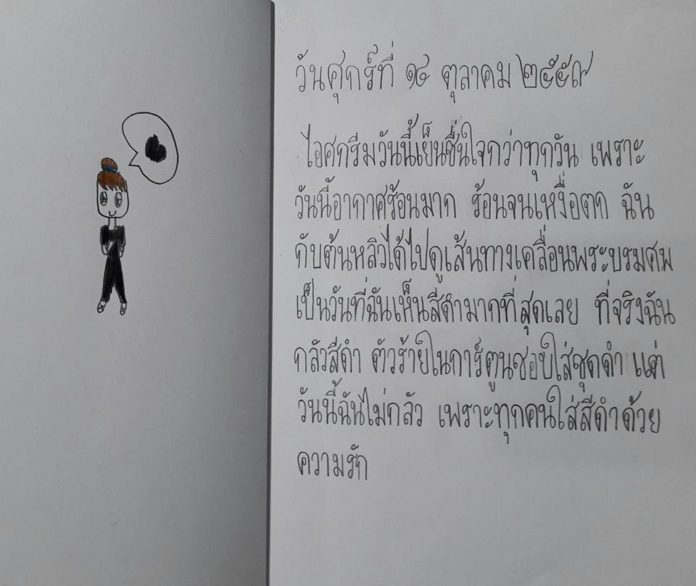 วันศุกร์ที่ ๑๔ ตุลาคม ๒๕๕๙
ไอศกรีมวันนี้เย็นชื่นใจกว่าทุกวัน เพราะ
วันนี้อากาศร้อนมาก ร้อนจนเหงื่อตก ฉัน
กับต้นหลิวได้ไปดูเส้นทางเคลื่อนพระบรมศพ
เป็นวันที่ฉันเห็นสีดำมากที่สุดเลย ที่จริงฉัน
กลัวสีดำ ตัวร้ายในการ์ตูนชอบใส่ชุดดำ แต่
วันนี้ฉันไม่กลัว เพราะทุกคนใส่สีดำด้วย
ความรัก